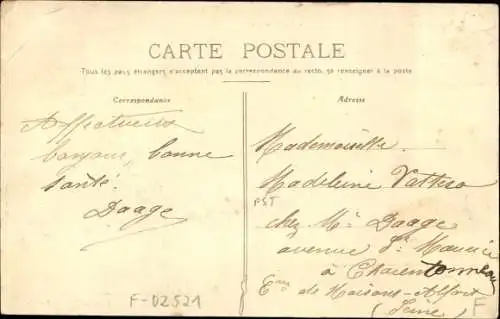 CARTE POSTALE
Tous les pays étrangers n'acceptent pas la correspondance au recto, se renseigner à la poste
Correspondance
Adresse
Affectueux
bonjour, bonne
santé.
Daage
Mademoiselle
Madeleine
PST
chez Mr Daage
avenue St Maurice
à Charentonneau
Cne de Maisons-Alfort
(Seine)
F-02521
F